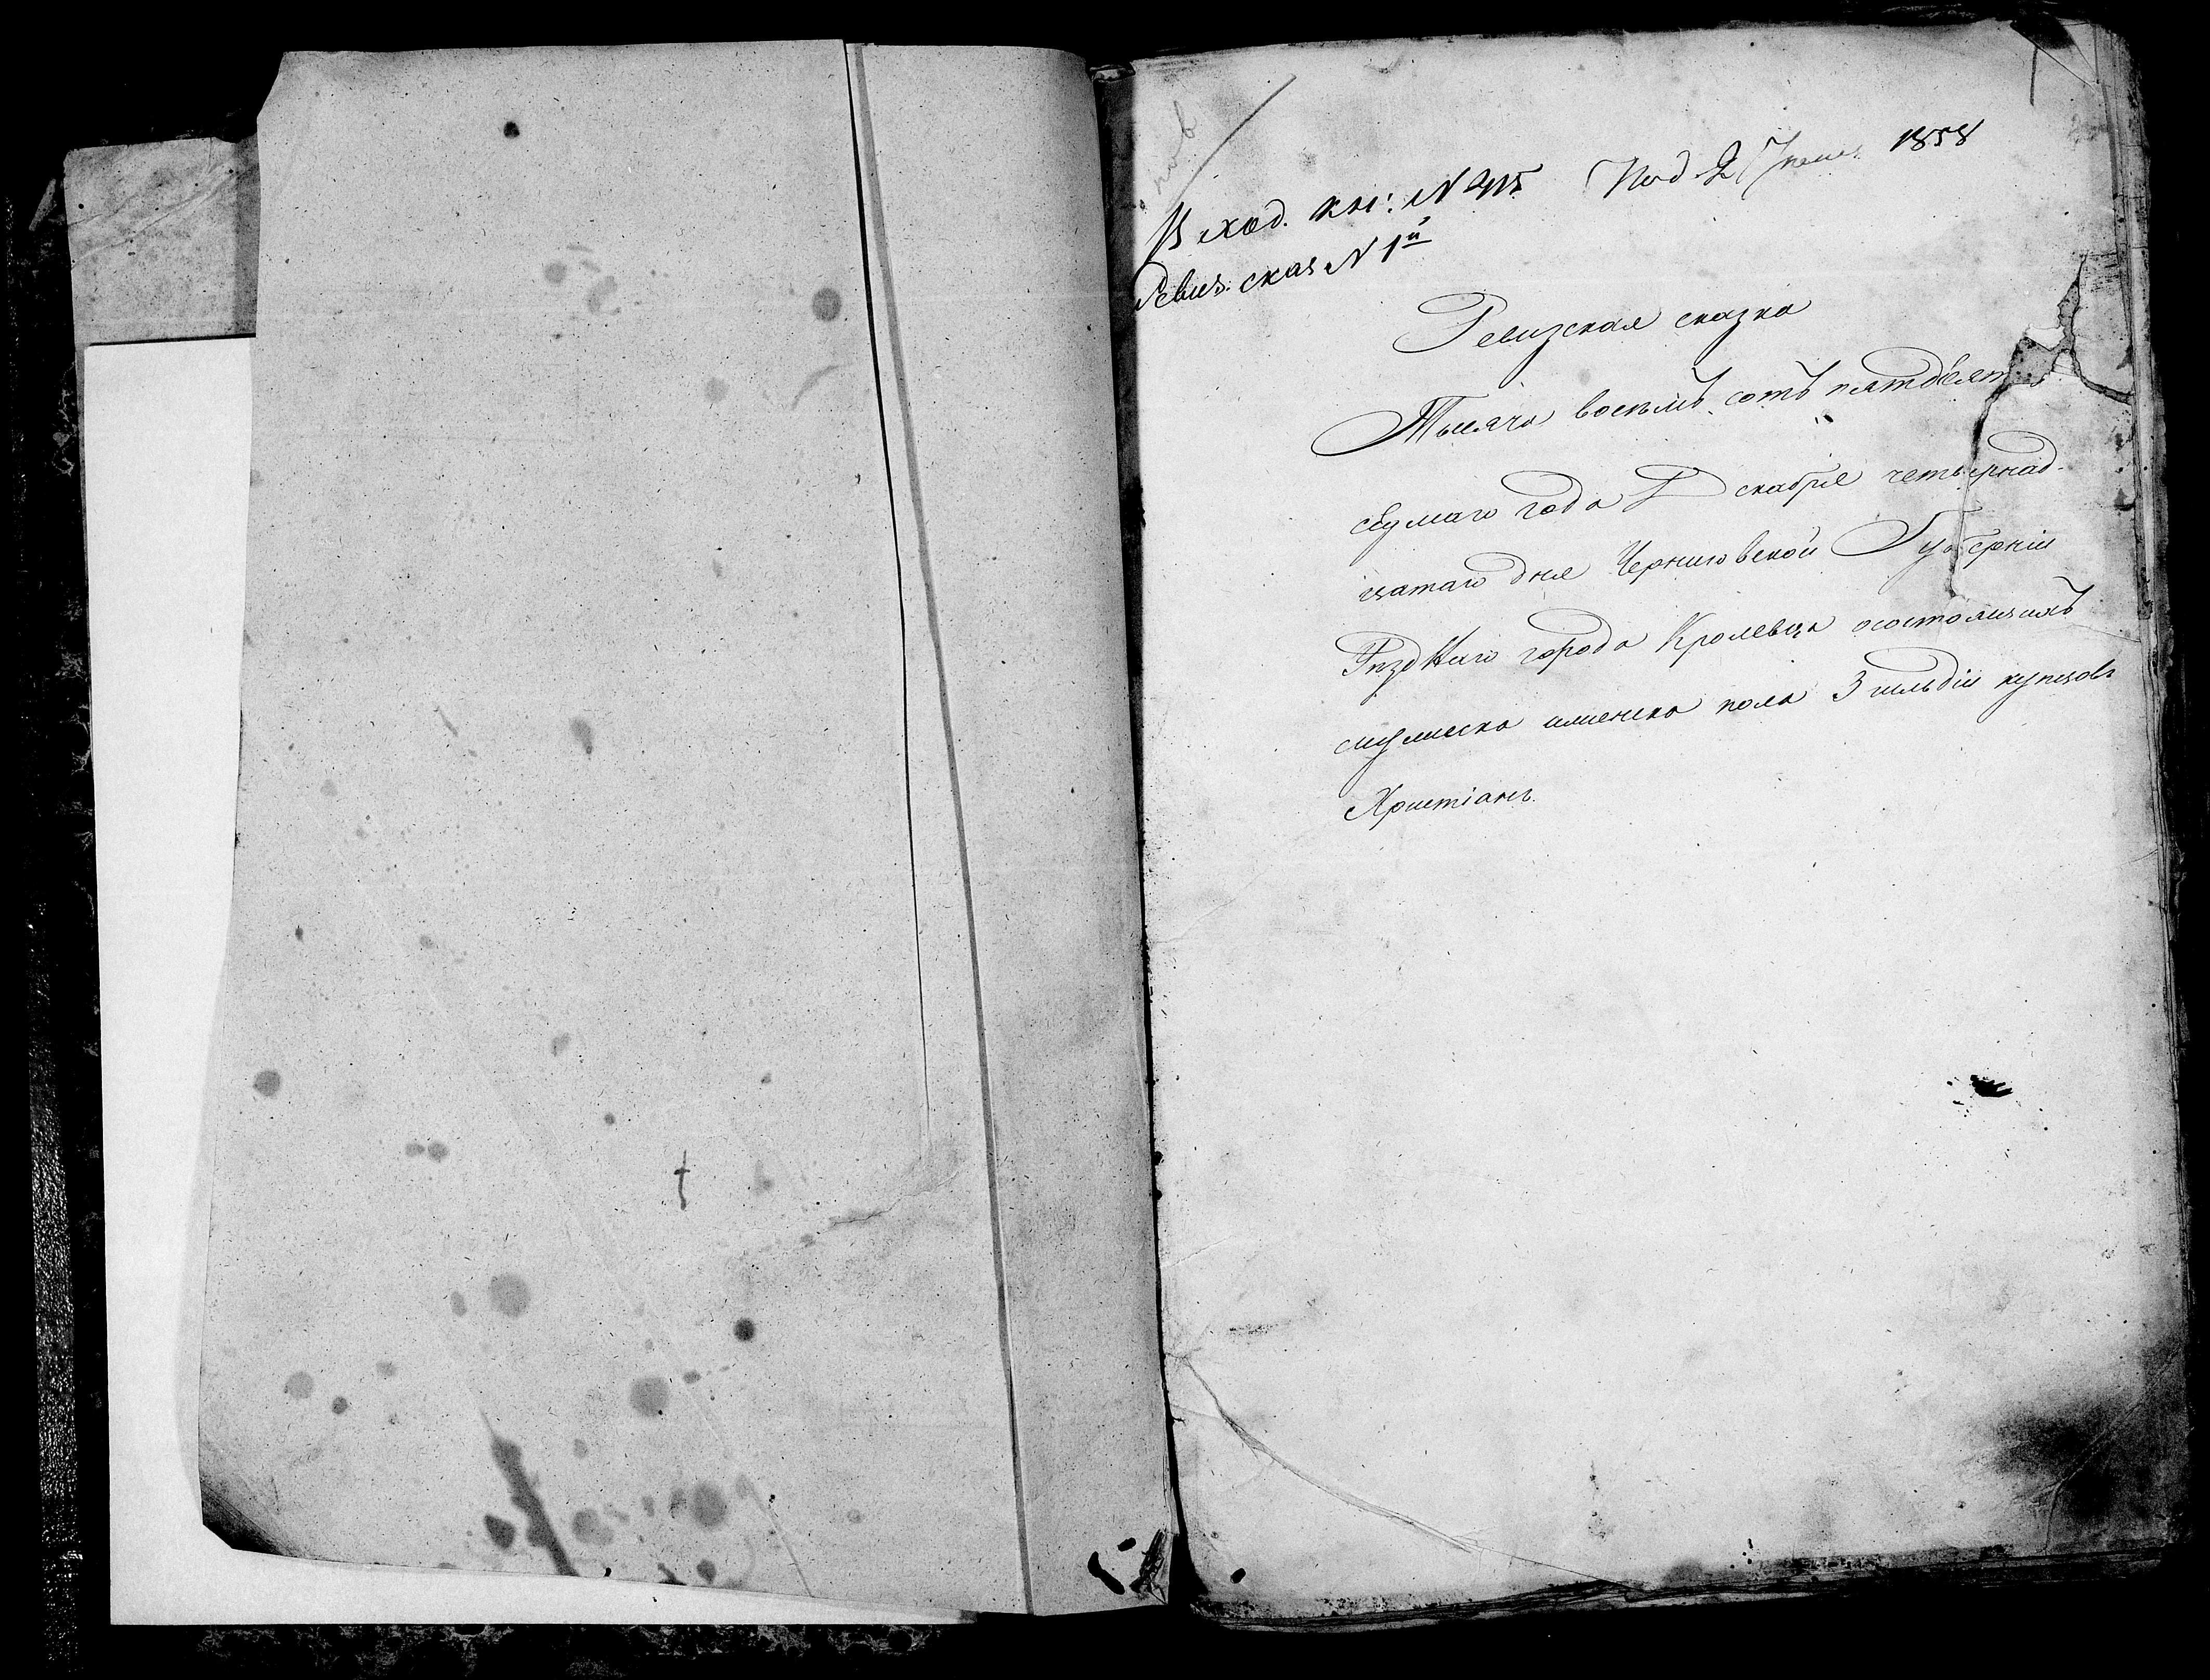 Вход. кн: N 415 Под. 2 1858
Ревиз. сказ N 1й
Ревизская сказка
Тысяча восемь сотъ пятдесят
седмаго года Декабря четырнад-
цатаго дня Черниговской Губерніи
Уѣзднаго города Кролевца осостоящихъ
мужеска иженска пола 3 гильдіи купцовъ
Христіанъ.